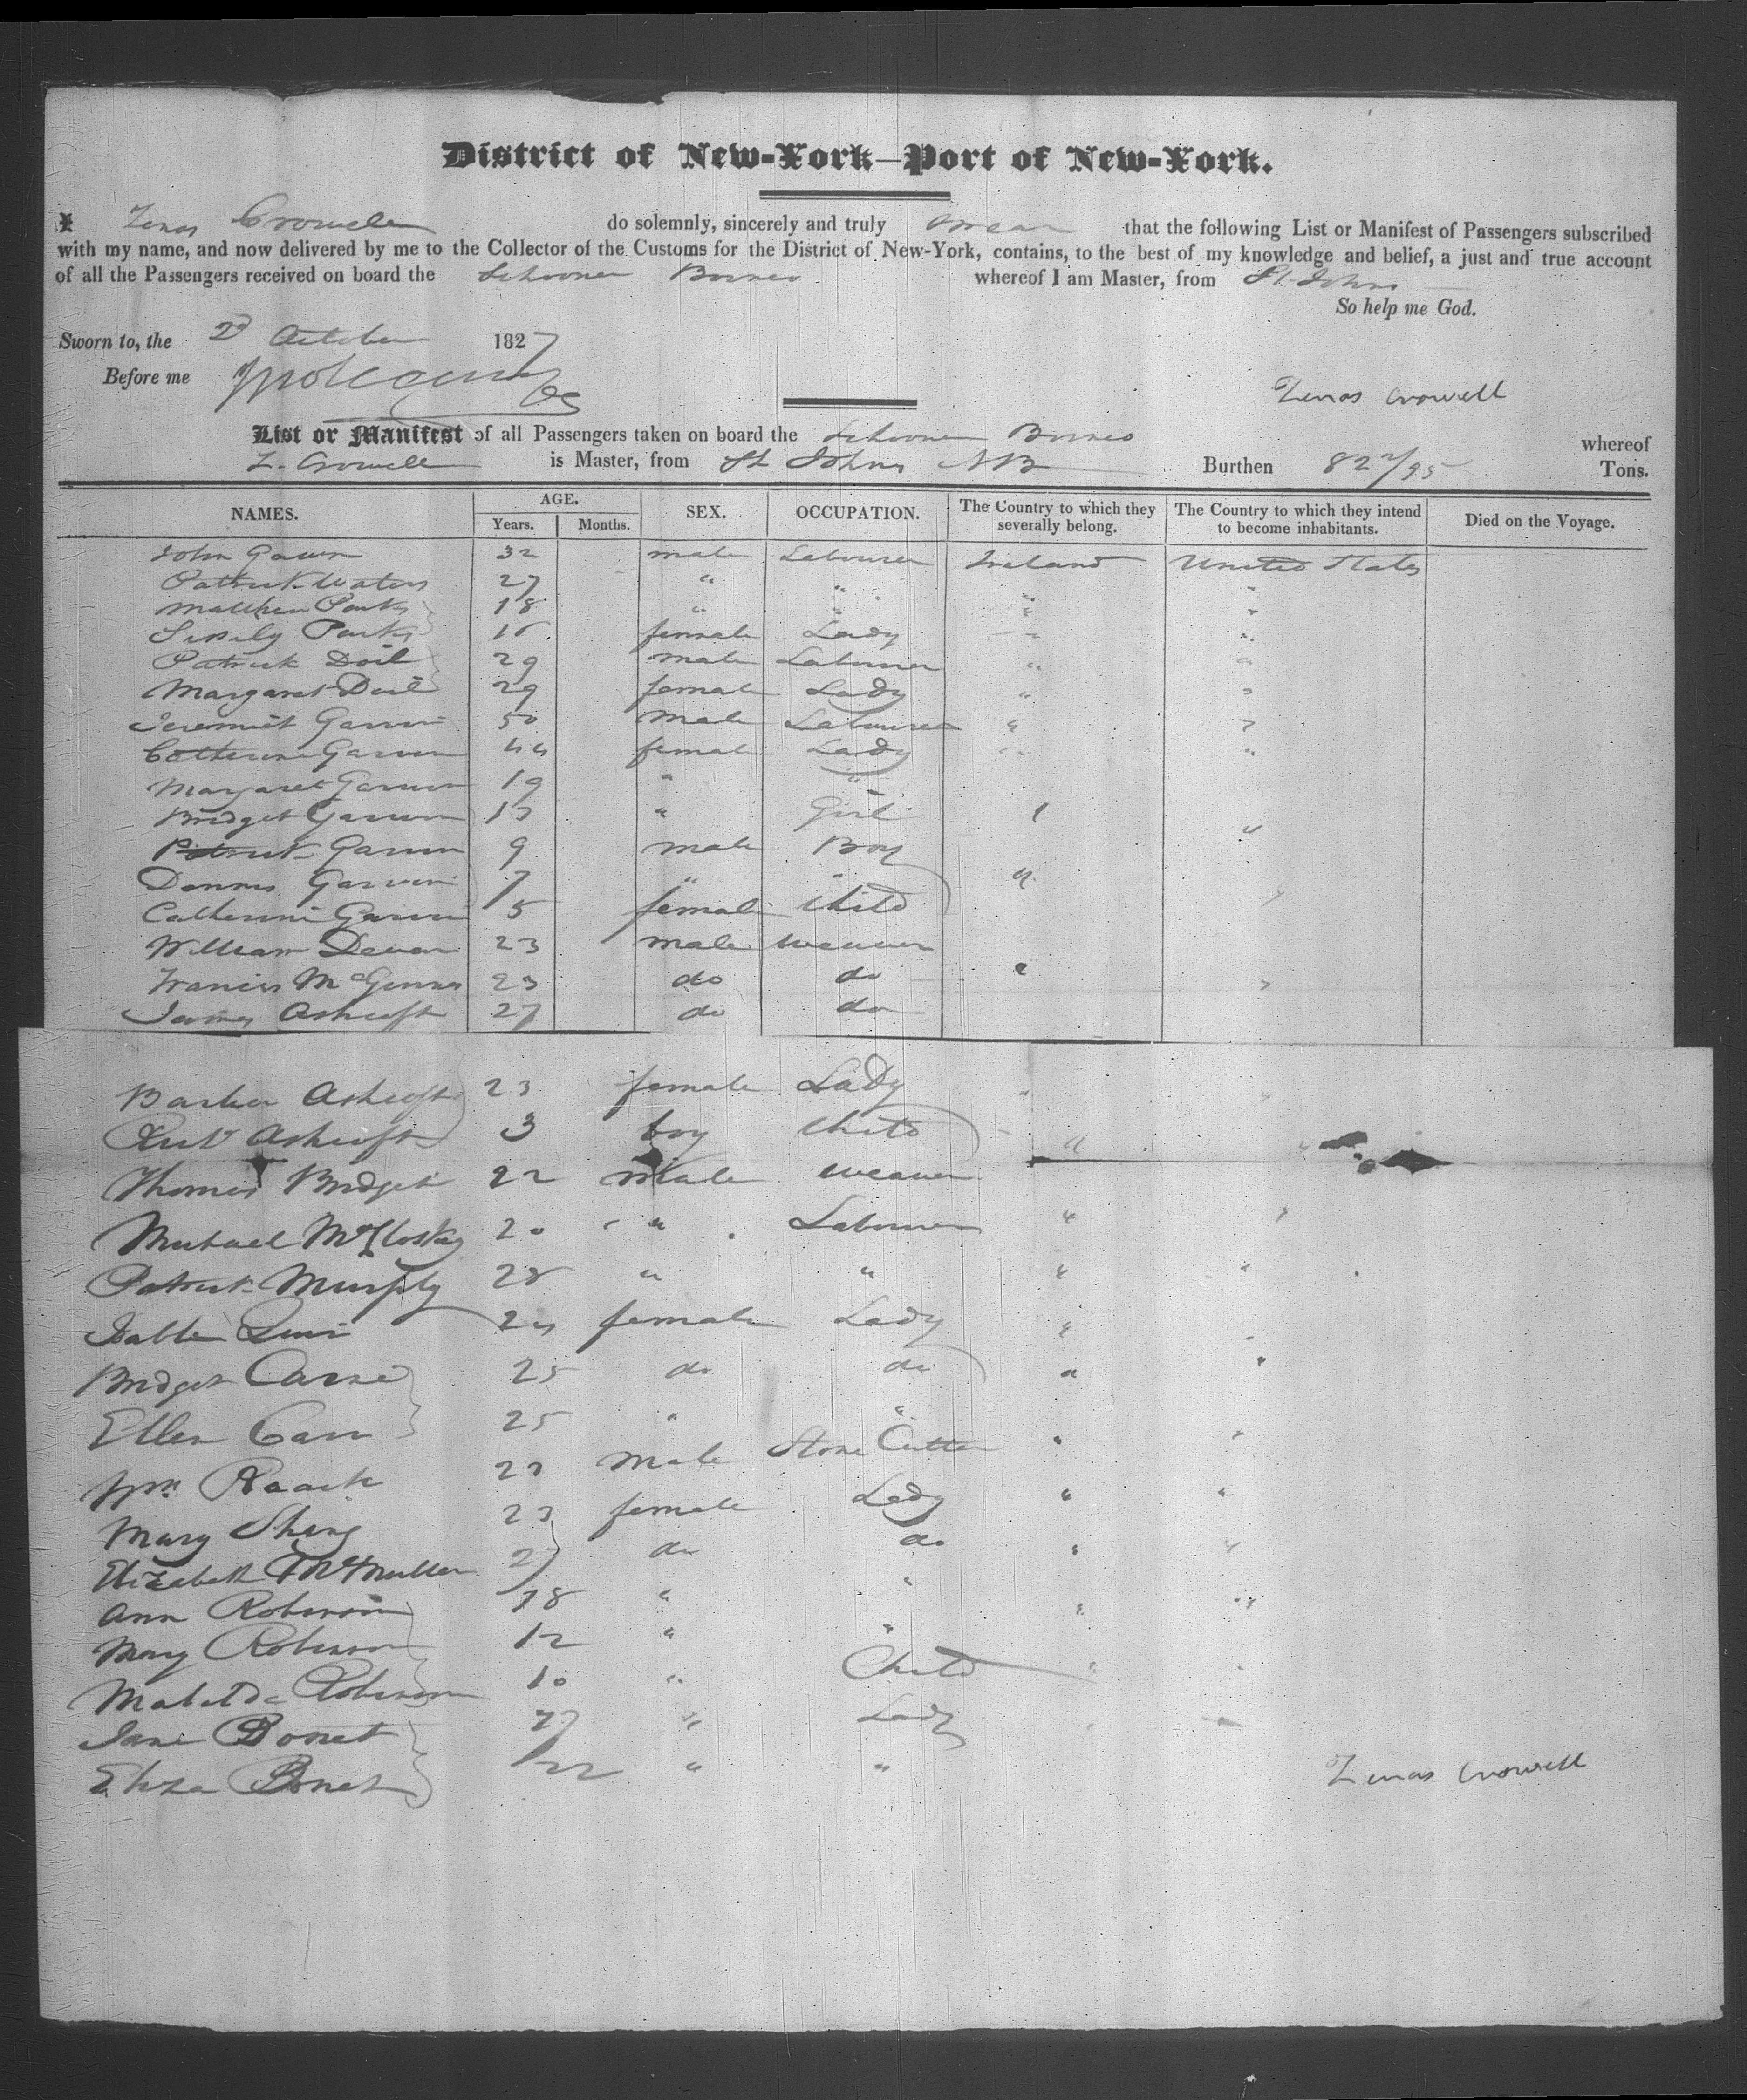 District of New-York—Port of New-York.
I Zenos Crowell do solemnly, sincerely and truly swear that the following List or Manifest of Passengers subscribed
with my name, and now delivered by me to the Collector of the Customs for the District of New-York, contains, to the best of my knowledge and belief, a just and true account
of all the Passengers received on board the Schooner Borneo whereof I am Master, from St. Johns
So help me God.
Sworn to, the 2d October 1827
Before me
Zenos Crowell
List or Manifest of all Passengers taken on board the Schooner Borneo whereof
Z. Crowell is Master, from St Johns NB Burthen 82 /95 Tons.
NAMES. AGE. Years. Months. SEX. OCCUPATION. The Country to which they severally belong. The Country to which they intend to become inhabitants. Died on the Voyage.
John Garvin 32 male Labourer Ireland United States
Patrick Waters 27 " " "
Matthew Parks 18 " " " "
Parks female Lady " "
Patrick Doil 29 male Labourer " "
Margaret Doil 29 female Lady " "
Jeremiah Garvin 50 Male Labourer " "
Catherine Garvin 44 female Lady " "
Margaret Garvin 19 " "
Bridget Garvin 13 " Girl " "
Patrick Garvin 9 male Boy
Dennis Garvin 7 " " "
Catherine Garvin 5 female Child "
William 23 male weaver
Francis 23 do do " "
James Ashcroft 27 do do
Ashcroft 23 female Lady " "
Robt Ashcroft 3 boy Child " "
Thomas Bridget 22 Male weaver
Michael McCloskey 20 " Labourer " "
Patrick Murphy 28 " " " "
24 female Lady " "
Bridget 25 do do " "
Ellen Carr 25 " "
Wm. Roark 23 Male Stone Cutter " "
Mary 23 female Lady " "
Elizabeth McMullen 27 do do " "
Ann Robinson 18 " " " "
Mary Robinson 12 " "
Matilda Robinson 10 " Child " "
Jane Bonet 27 " Lady
Eliza Bonet 22 " "
Zenos Crowell